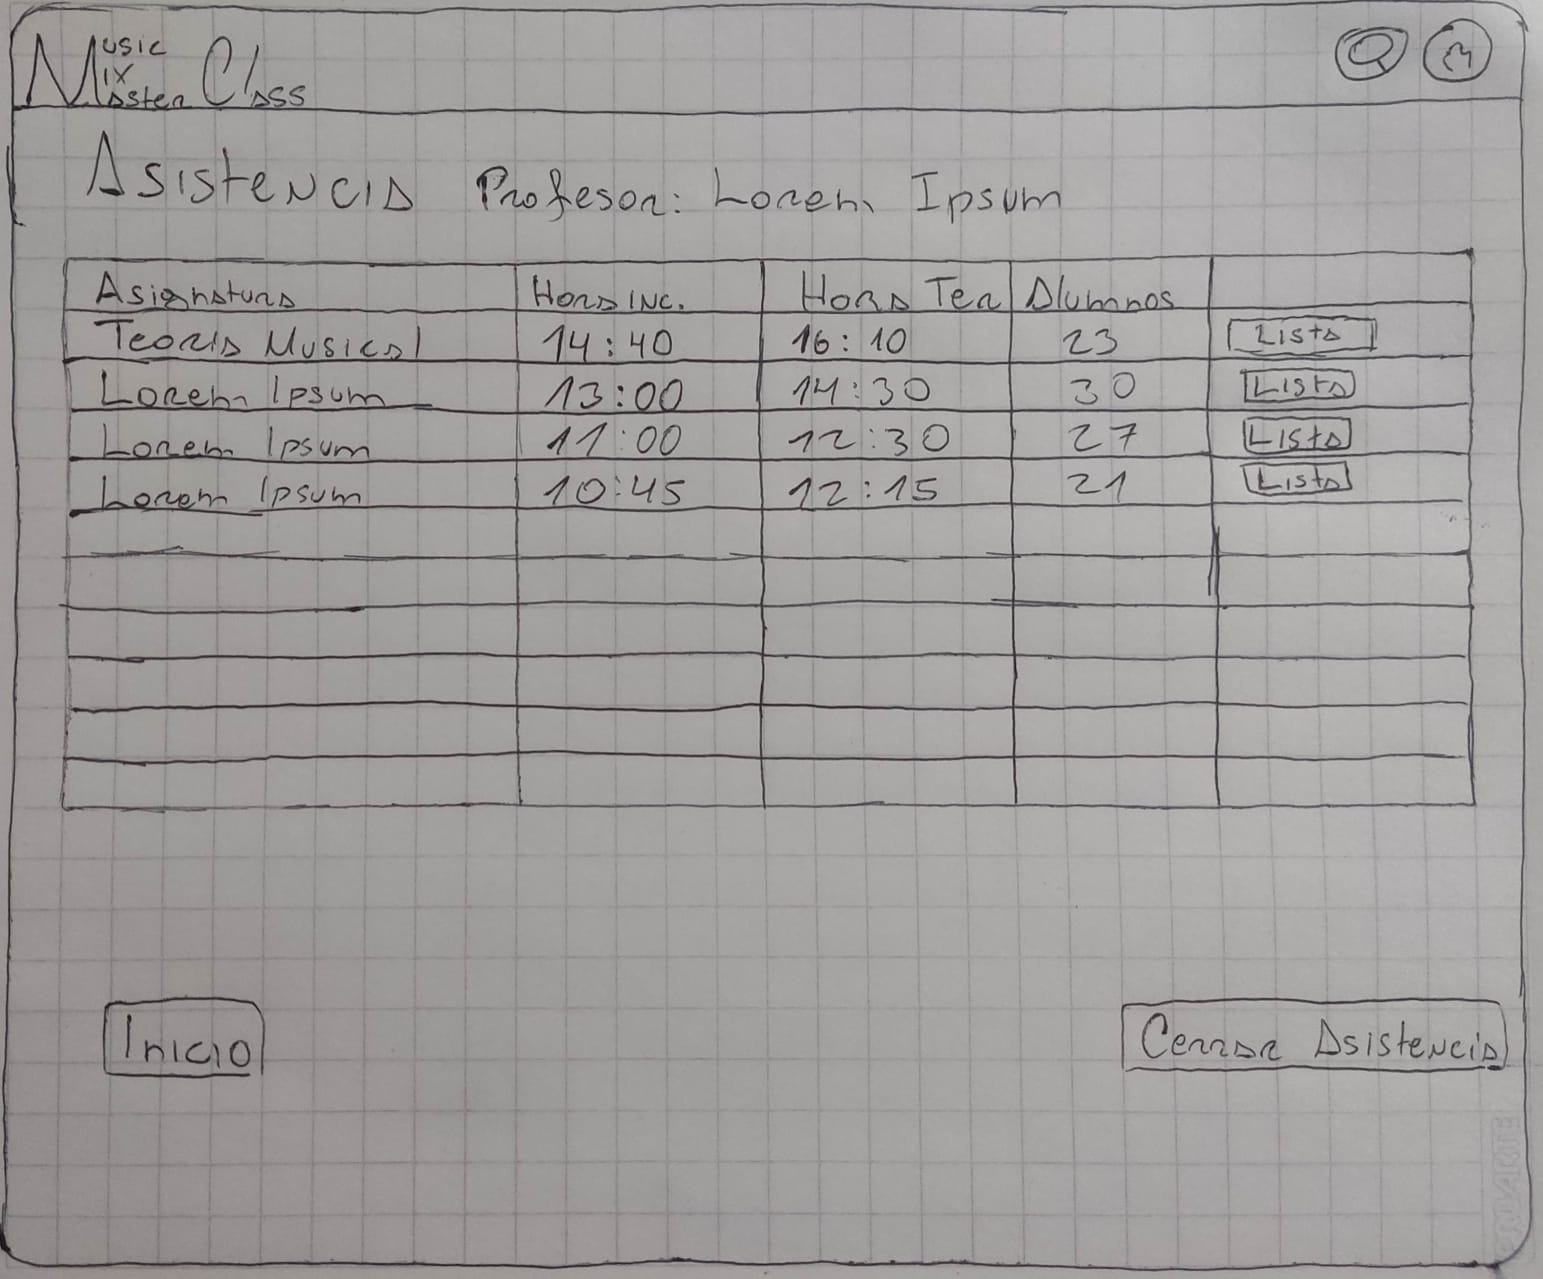 Music
Mix
Master Class
Asistencia Profesor: Lorem Ipsum
Asignatura Hora Inc. Hora Ter Alumnos
Teoria Musical 14:40 16:10 23 Lista
Lorem Ipsum 13:00 14:30 30 Lista
Lorem Ipsum 11:00 12:30 27 Lista
Lorem Ipsum 10:45 12:15 21 Lista
Inicio Cerrar Asistencia